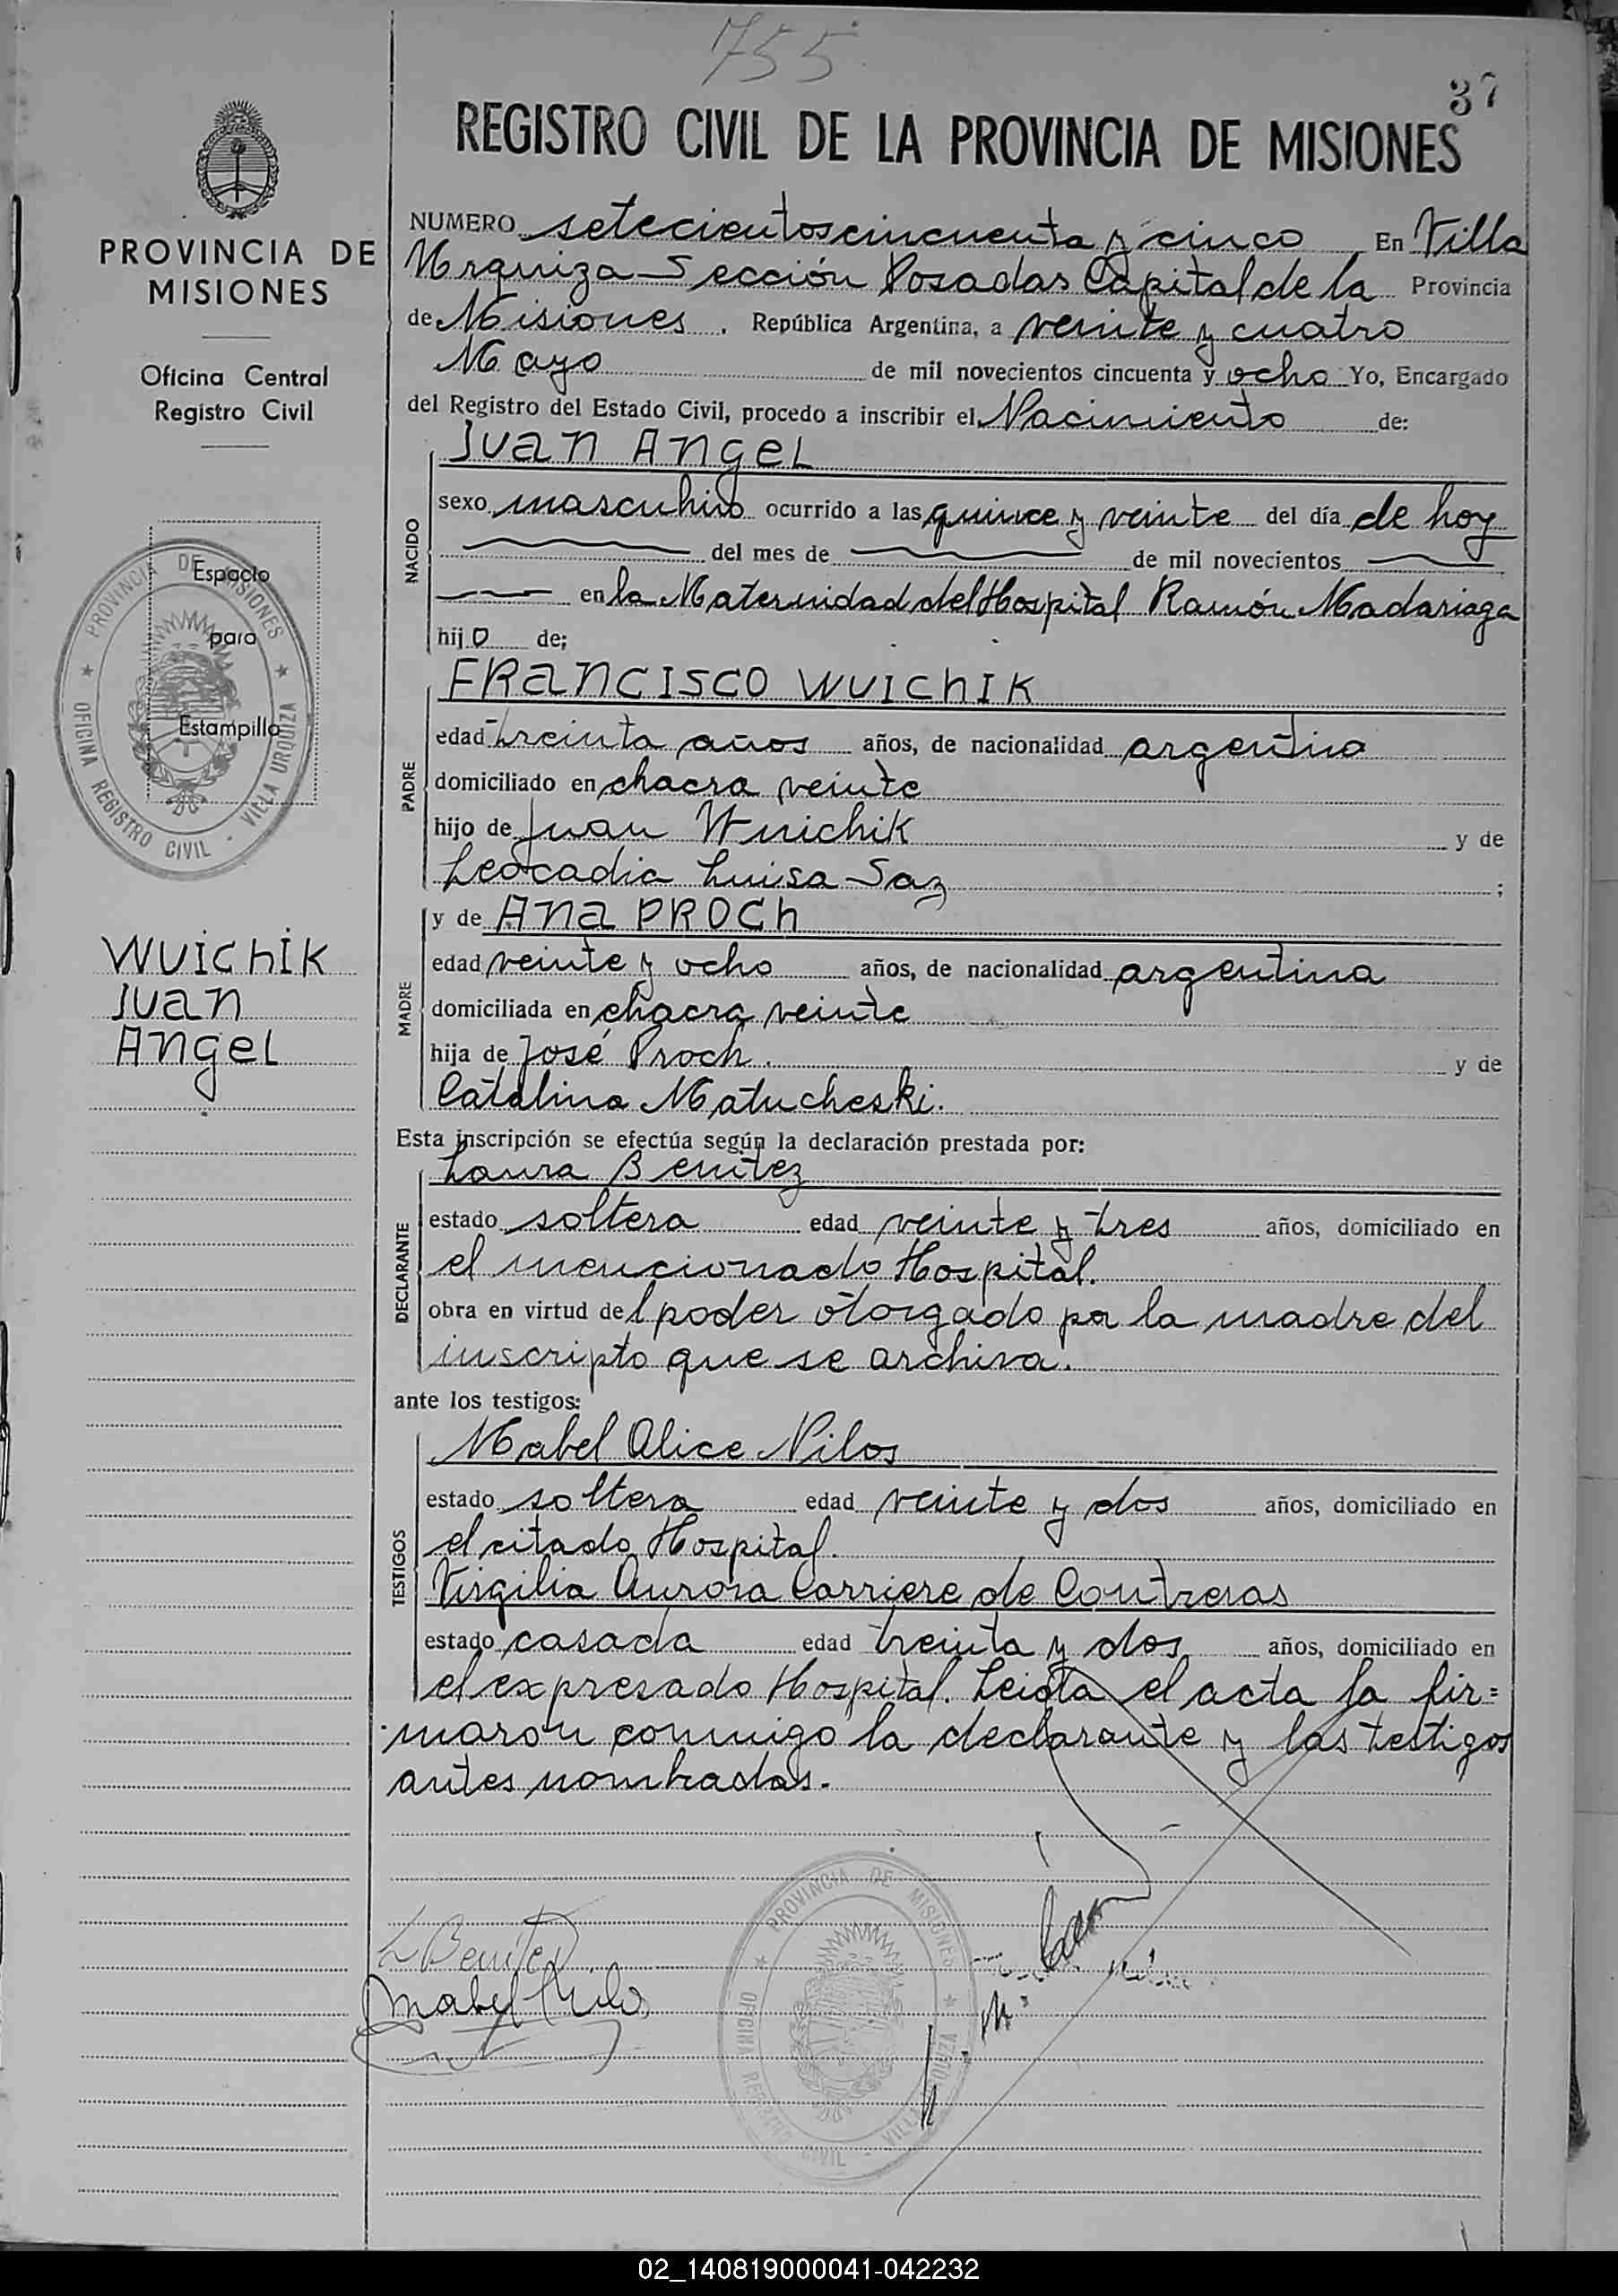 755
37
REGISTRO CIVIL DE LA PROVINCIA DE MISIONES
PROVINCIA DE
MISIONES
Oficina Central
Registro Civil
PROVINCIA DE MISIONES
OFICINA REGISTRO CIVIL - VILLA URQUIZA
Espacio
para
Estampilla
WUICHIK
JUAN
ANGEL
NUMERO setecientos cincuenta y cinco En Villa
Urquiza Sección Posadas Capital de la Provincia
de Misiones . República Argentina, a veinte y cuatro
Mayo de mil novecientos cincuenta y ocho Yo, Encargado
del Registro del Estado Civil, procedo a inscribir el Nacimiento de:
NACIDO
JUAN ANGEL
sexo masculino ocurrido a las quince y veinte del día de hoy
del mes de de mil novecientos
en la Maternidad del Hospital Ramón Madariaga
hijo de;
PADRE
FRANCISCO WUICHIK
edad treinta años años, de nacionalidad argentino
domiciliado en chacra veinte
hijo de Juan Wuichik y de
Leocadia Luisa Saz ;
MADRE
y de ANA PROCH
edad veinte y ocho años, de nacionalidad argentina
domiciliada en chacra veinte
hija de José Proch. y de
Catalina Matucheski.
Esta inscripción se efectúa según la declaración prestada por:
DECLARANTE
Laura Benitez
estado soltera edad veinte y tres años, domiciliado en
el mencionado Hospital.
obra en virtud del poder otorgado por la madre del
inscripto que se archiva.
ante los testigos:
TESTIGOS
Mabel Alice Nilos
estado soltera edad veinte y dos años, domiciliado en
el citado Hospital.
Virgilia Aurora Carriere de Contreras
estado casada edad treinta y dos años, domiciliado en
el expresado Hospital. Leida el acta la fir=
maron conmigo la declarante y las testigos
antes nombradas.
L Benitez
Mabel Nilos
PROVINCIA DE MISIONES
OFICINA REGISTRO CIVIL - VILLA URQUIZA
02_140819000041-042232